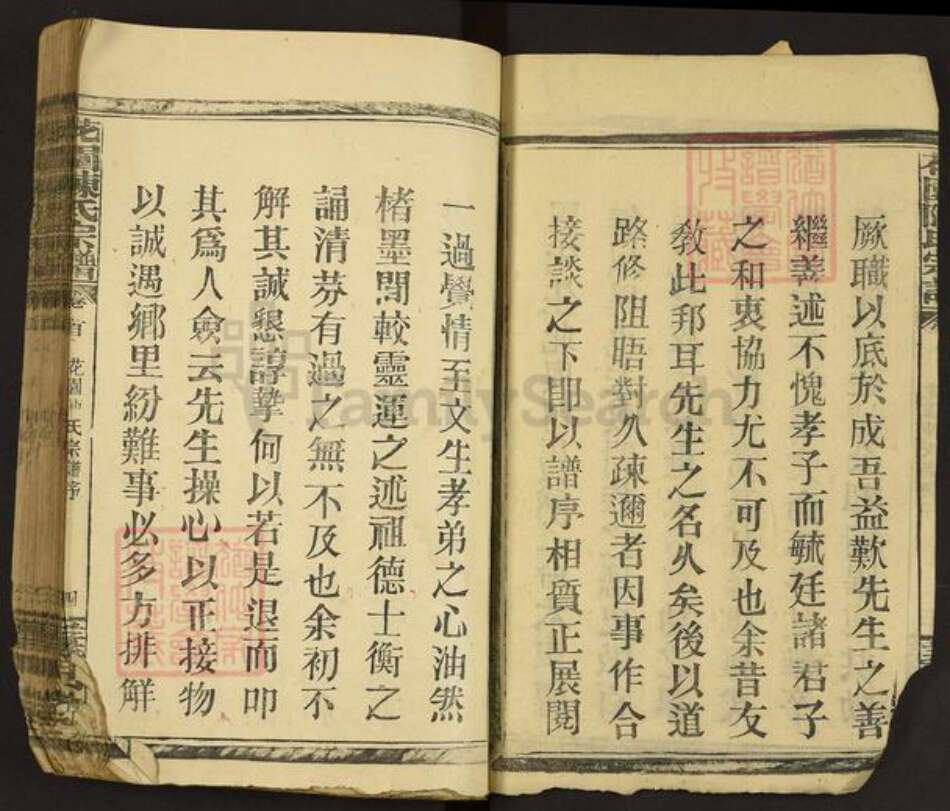 厥職以底於成吾益歎先生之善
繼善述不愧孝子而毓廷諸君子
之和衷協力尤不可及也余昔友
敎此邦耳先生之名久矣後以道
路修阻晤對久疎邇者因事作合
接談之下即以譜序相質正展閱
一過覺情至文生孝弟之心油然
楮墨間較靈運之述祖德士衡之
誦清芬有過之無不及也余初不
解其誠懇諄摯何以若是退而叩
其爲人僉云先生操心以正接物
以誠遇鄉里紛難事必多方排解
花園陳氏宗譜
卷首
花園 氏宗譜序
四
FamilySearch